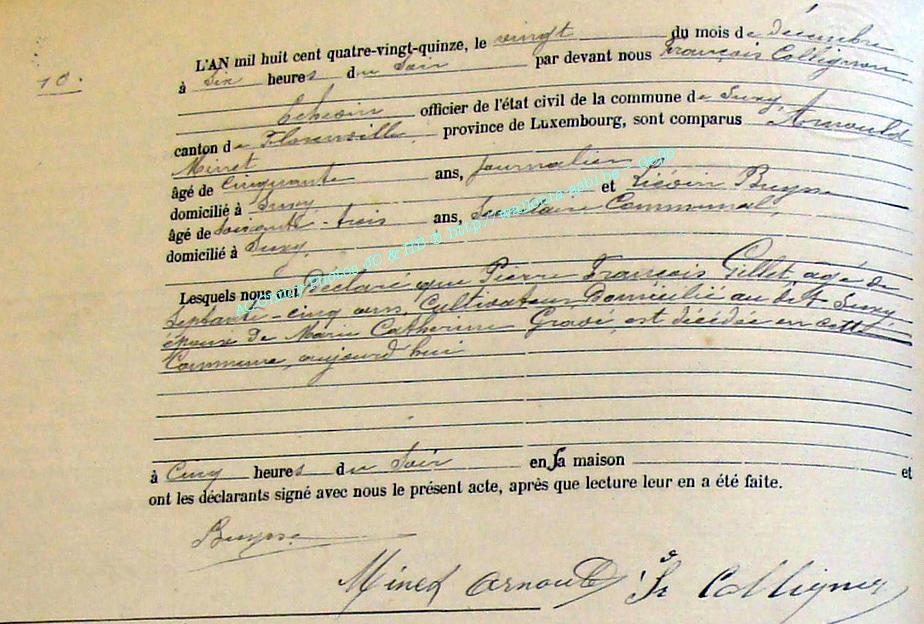 10.
L'AN mil huit cent quatre-vingt-quinze, le vingt du mois de décembre
à Six heures du Soir par devant nous François Collignon
Echevin officier de l'état civil de la commune de Suxy,
canton de Florenville province de Luxembourg, sont comparus Arnould
Minet
âgé de Cinquante ans, Journalier
domicilié à Suxy et Liévin Buysse
âgé de Soixante-trois ans, Secrétaire Communal,
domicilié à Suxy,
Lesquels nous ont Déclaré que Pierre François Gillet, agé de
Septante-cinq ans, Cultivateur Domicilié au dit Suxy
époux de Marie Catherine est décédé en cette
Commune, aujourd'hui
à Cinq heures du Soir en sa maison et
ont les déclarants signé avec nous le présent acte, après que lecture leur en a été faite.
Buysse
Minet Arnould Fr Collignon